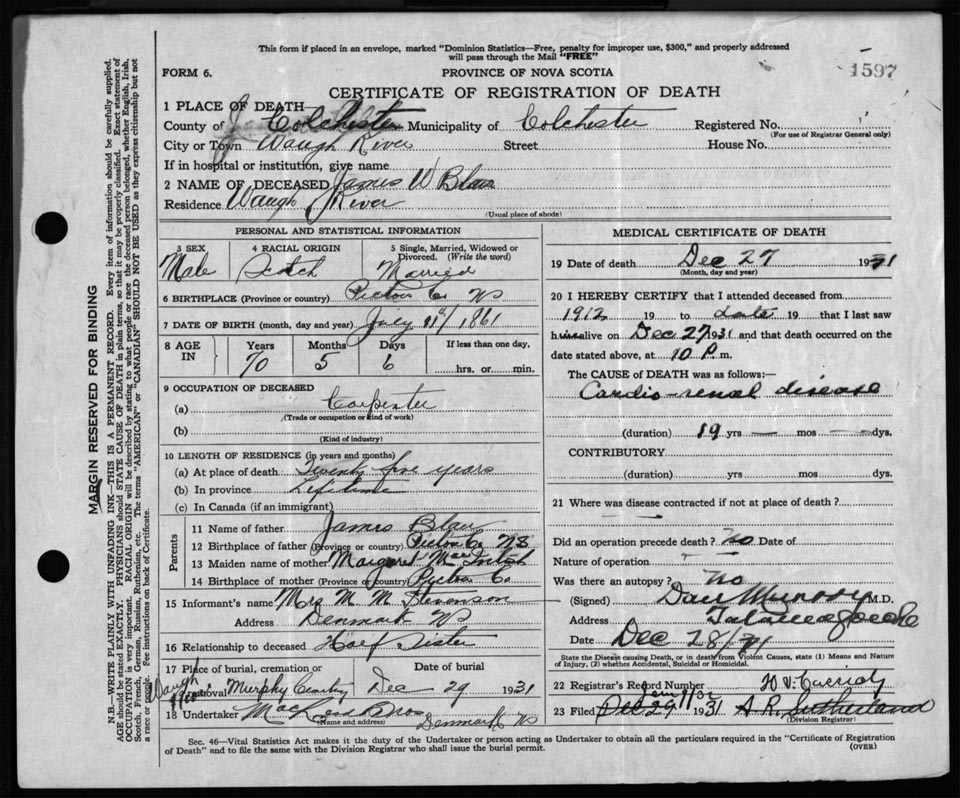 This form if placed in an envelope, marked "Dominion Statistics—Free, penalty for improper use, $300," and properly addressed
will pass through the Mail "FREE"
1597
FORM 6.
PROVINCE OF NOVA SCOTIA
CERTIFICATE OF REGISTRATION OF DEATH
1 PLACE OF DEATH
County of Colchester Municipality of Colchester Registered No.
(For use of Registrar General only)
City or Town Waugh River Street House No.
If in hospital or institution, give name
2 NAME OF DECEASED James W Blair
Residence Waugh River
(Usual place of abode)
PERSONAL AND STATISTICAL INFORMATION
3 SEX Male
4 RACIAL ORIGIN Scotch
5 Single, Married, Widowed or Divorced. (Write the word) Married
6 BIRTHPLACE (Province or country) Pictou Co NS
7 DATE OF BIRTH (month, day and year) July 1861
8 AGE IN Years 70 Months 5 Days 6 If less than one day, hrs. or min.
9 OCCUPATION OF DECEASED
(a) Carpenter
(Trade or occupation or kind of work)
(b)
(Kind of industry)
10 LENGTH OF RESIDENCE (in years and months)
(a) At place of death Twenty five years
(b) In province Lifetime
(c) In Canada (if an immigrant)
Parents
11 Name of father James Blair
12 Birthplace of father (Province or country) Pictou Co NS
13 Maiden name of mother Margaret MacIntosh
14 Birthplace of mother (Province or country) Pictou Co
15 Informant's name Mrs M M Stevenson
Address Denmark NS
16 Relationship to deceased Half Sister
17 Place of burial, cremation or removal Murphy Cemetery Waugh River
Date of burial Dec 29 1931
18 Undertaker MacLeod Bros Denmark NS
(Name and address)
MEDICAL CERTIFICATE OF DEATH
19 Date of death Dec 27 1931
(Month, day and year)
20 I HEREBY CERTIFY that I attended deceased from
1912 19 to date 19 that I last saw
him alive on Dec 27 1931 and that death occurred on the
date stated above, at 10 P. m.
The CAUSE of DEATH was as follows:—
Cardio-renal disease
(duration) 19 yrs — mos — dys.
CONTRIBUTORY
(duration) yrs mos dys.
21 Where was disease contracted if not at place of death?
Did an operation precede death? No Date of
Nature of operation
Was there an autopsy? No
(Signed) Dan Murray M.D.
Address Tatamagouche
Date Dec 28/31
State the Disease causing Death, or in death from Violent Causes, state (1) Means and Nature
of Injury, (2) whether Accidental, Suicidal or Homicidal.
22 Registrar's Record Number
23 Filed Dec 29 1931 A R Sutherland
(Division Registrar)
Sec. 46—Vital Statistics Act makes it the duty of the Undertaker or person acting as Undertaker to obtain all the particulars required in the "Certificate of Registration
of Death" and to file the same with the Division Registrar who shall issue the burial permit.
(OVER)
MARGIN RESERVED FOR BINDING
N.B.—WRITE PLAINLY WITH UNFADING INK—THIS IS A PERMANENT RECORD. Every item of information should be carefully supplied.
AGE should be stated EXACTLY. PHYSICIANS should STATE CAUSE OF DEATH in plain terms, so that it may be properly classified. Exact statement of
OCCUPATION is very important. RACIAL ORIGIN will be described by stating to what people or race the deceased person belonged, whether English, Irish,
Scotch, French, German, Russian, Ruthenian, etc. The terms "AMERICAN" or "CANADIAN" SHOULD NOT BE USED as they express citizenship but not
a race or people. See instructions on back of Certificate.